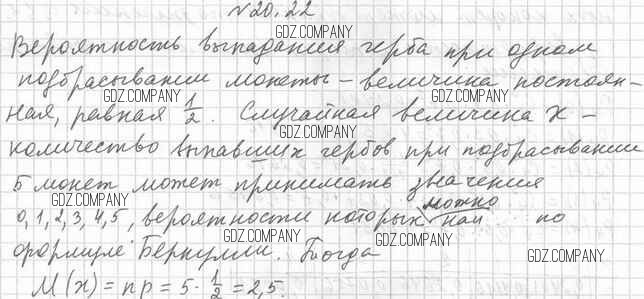 №20.22
Вероятность выпадания герба при одном
подбрасывании монеты – величина постоян-
ная, равная 1/2. Случайная величина X –
количество выпавших гербов при подбрасывании
5 монет может принимать значения
0, 1, 2, 3, 4, 5, вероятности которых можно най по
формуле Бернулли. Тогда
M(x) = np = 5 · 1/2 = 2,5.
GDZ.COMPANY
GDZ.COMPANY
GDZ.COMPANY
GDZ.COMPANY
GDZ.COMPANY
GDZ.COMPANY
GDZ.COMPANY
GDZ.COMPANY
GDZ.COMPANY